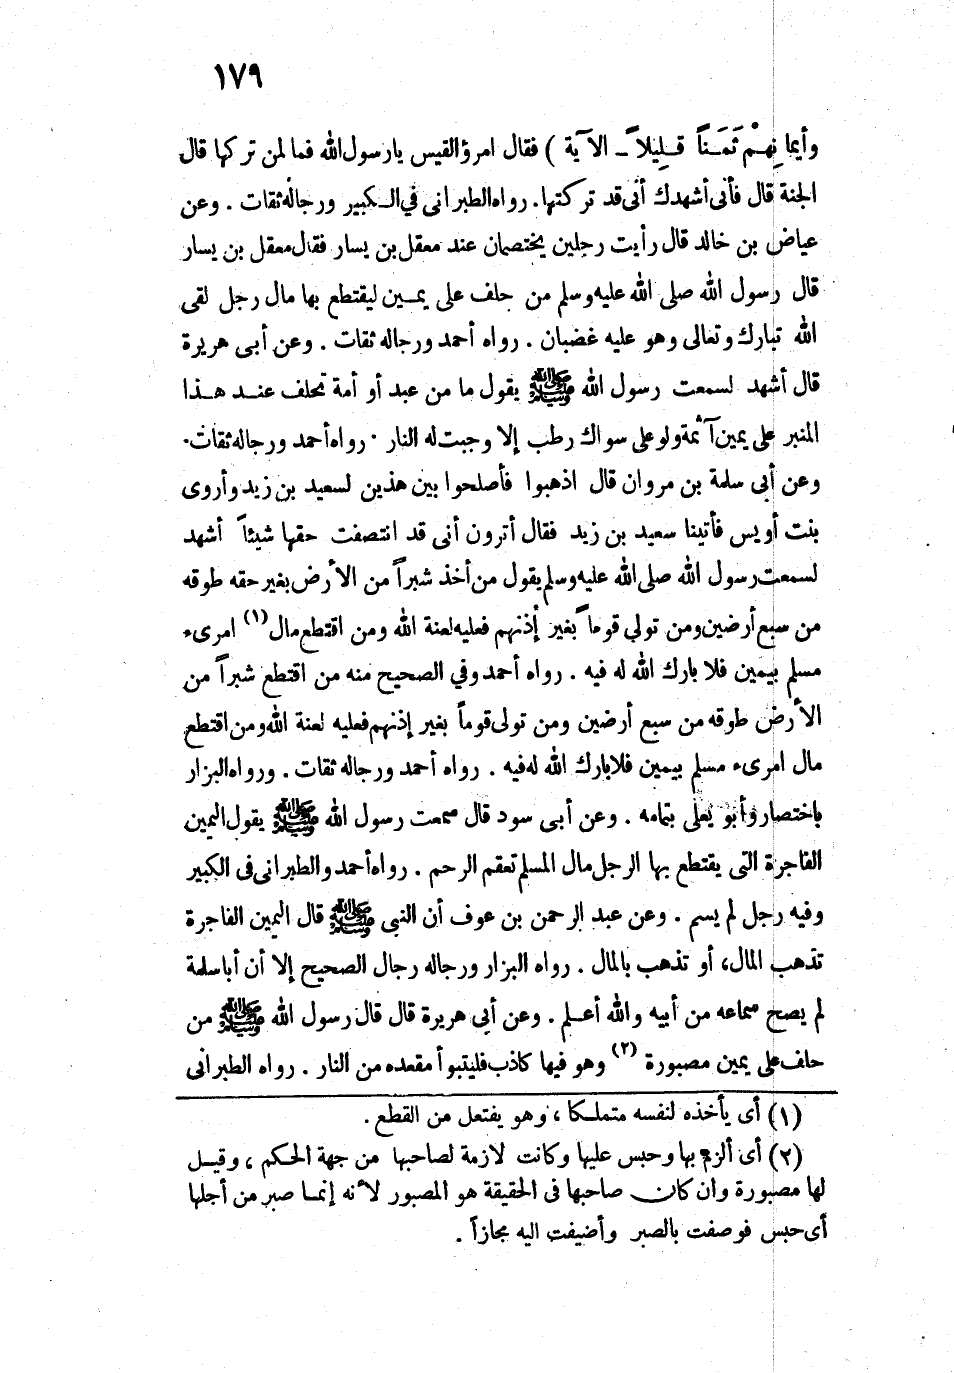 ١٧٩
وأيمانِهِمْ ثَمَنَاً قَلِيلاً ــ الآية ) فقال امرؤ القيس يارسول الله فما لمن تركها قال
الجنة قال فأنى أشهدك أنى قد تركتها . رواه الطبرانى في الكبير ورجاله ثقات . وعن
عياض بن خالد قال رأيت رجلين يختصمان عند معقل بن يسار فقال معقل بن يسار
قال رسول الله صلى الله عليه وسلم من حلف على يمين ليقتطع بها مال رجل لقى
الله تبارك وتعالى وهو عليه غضبان . رواه أحمد ورجاله ثقات . وعن أبى هريرة
قال أشهد لسمعت رسول الله ﷺ يقول ما من عبد أو أمة تحلف عند هذا
المنبر على يمين آثمة ولو على سواك رطب إلا وجبت له النار . رواه أحمد ورجاله ثقات .
وعن أبى سلمة بن مروان قال اذهبوا فأصلحوا بين هذين لسعيد بن زيد وأروى
بنت أويس فأتينا سعيد بن زيد فقال أترون أنى قد انتصفت حقها شيئاً أشهد
لسمعت رسول الله صلى الله عليه وسلم يقول من أخذ شبراً من الأرض بغير حقه طوقه
من سبع أرضين ومن تولي قوماً بغير إذنهم فعليه لعنة الله ومن اقتطع مال (١) امرىء
مسلم بيمين فلا بارك الله له فيه . رواه أحمد وفي الصحيح منه من اقتطع شبراً من
الأرض طوقه من سبع أرضين ومن تولى قوماً بغير إذنهم فعليه لعنة الله ومن اقتطع
مال امرىء مسلم بيمين فلا بارك الله له فيه . رواه أحمد ورجاله ثقات . ورواه البزار
باختصار وأبو يعلى بتمامه . وعن أبى سود قال سمعت رسول الله ﷺ يقول اليمين
الفاجرة التى يقتطع بها الرجل مال المسلم تعقم الرحم . رواه أحمد والطبرانى فى الكبير
وفيه رجل لم يسم . وعن عبد الرحمن بن عوف أن النبي ﷺ قال اليمين الفاجرة
تذهب المال، أو تذهب بالمال . رواه البزار ورجاله رجال الصحيح إلا أن أبا سلمة
لم يصح سماعه من أبيه والله أعلم . وعن أبي هريرة قال قال رسول الله ﷺ من
حلف على يمين مصبورة (٢) وهو فيها كاذب فليتبوأ مقعده من النار . رواه الطبرانى
(١) أى يأخذه لنفسه متملكا ، وهو يفتعل من القطع .
(٢) أى ألزم بها وحبس عليها وكانت لازمة لصاحبها من جهة الحكم ، وقيل
لها مصبورة وان كان صاحبها فى الحقيقة هو المصبور لأنه إنما صبر من أجلها
أى حبس فوصفت بالصبر وأضيفت اليه مجازاً .